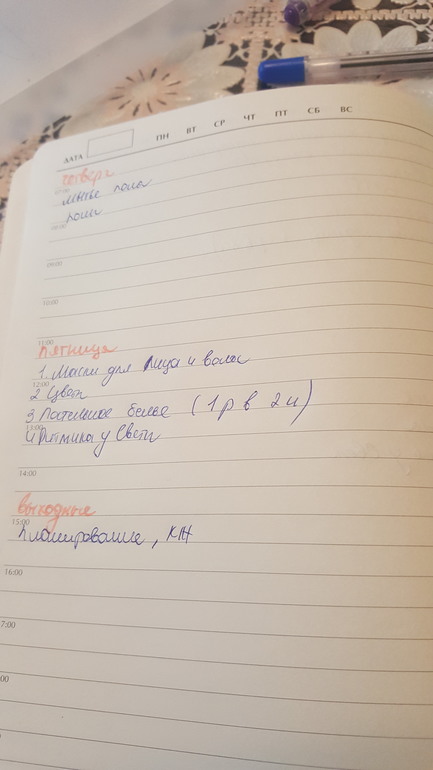 ДАТА ПН ВТ СР ЧТ ПТ СБ ВС
четверг
07:00
мытьё пола
08:00
09:00
10:00
11:00
пятница
1. Маски для лица и волос
12:00
2 Цветы
3 Постельное белье (1 р в 2 н)
13:00
4 Ритмика у Светы
14:00
выходные
15:00
планирование,
16:00
7:00
00